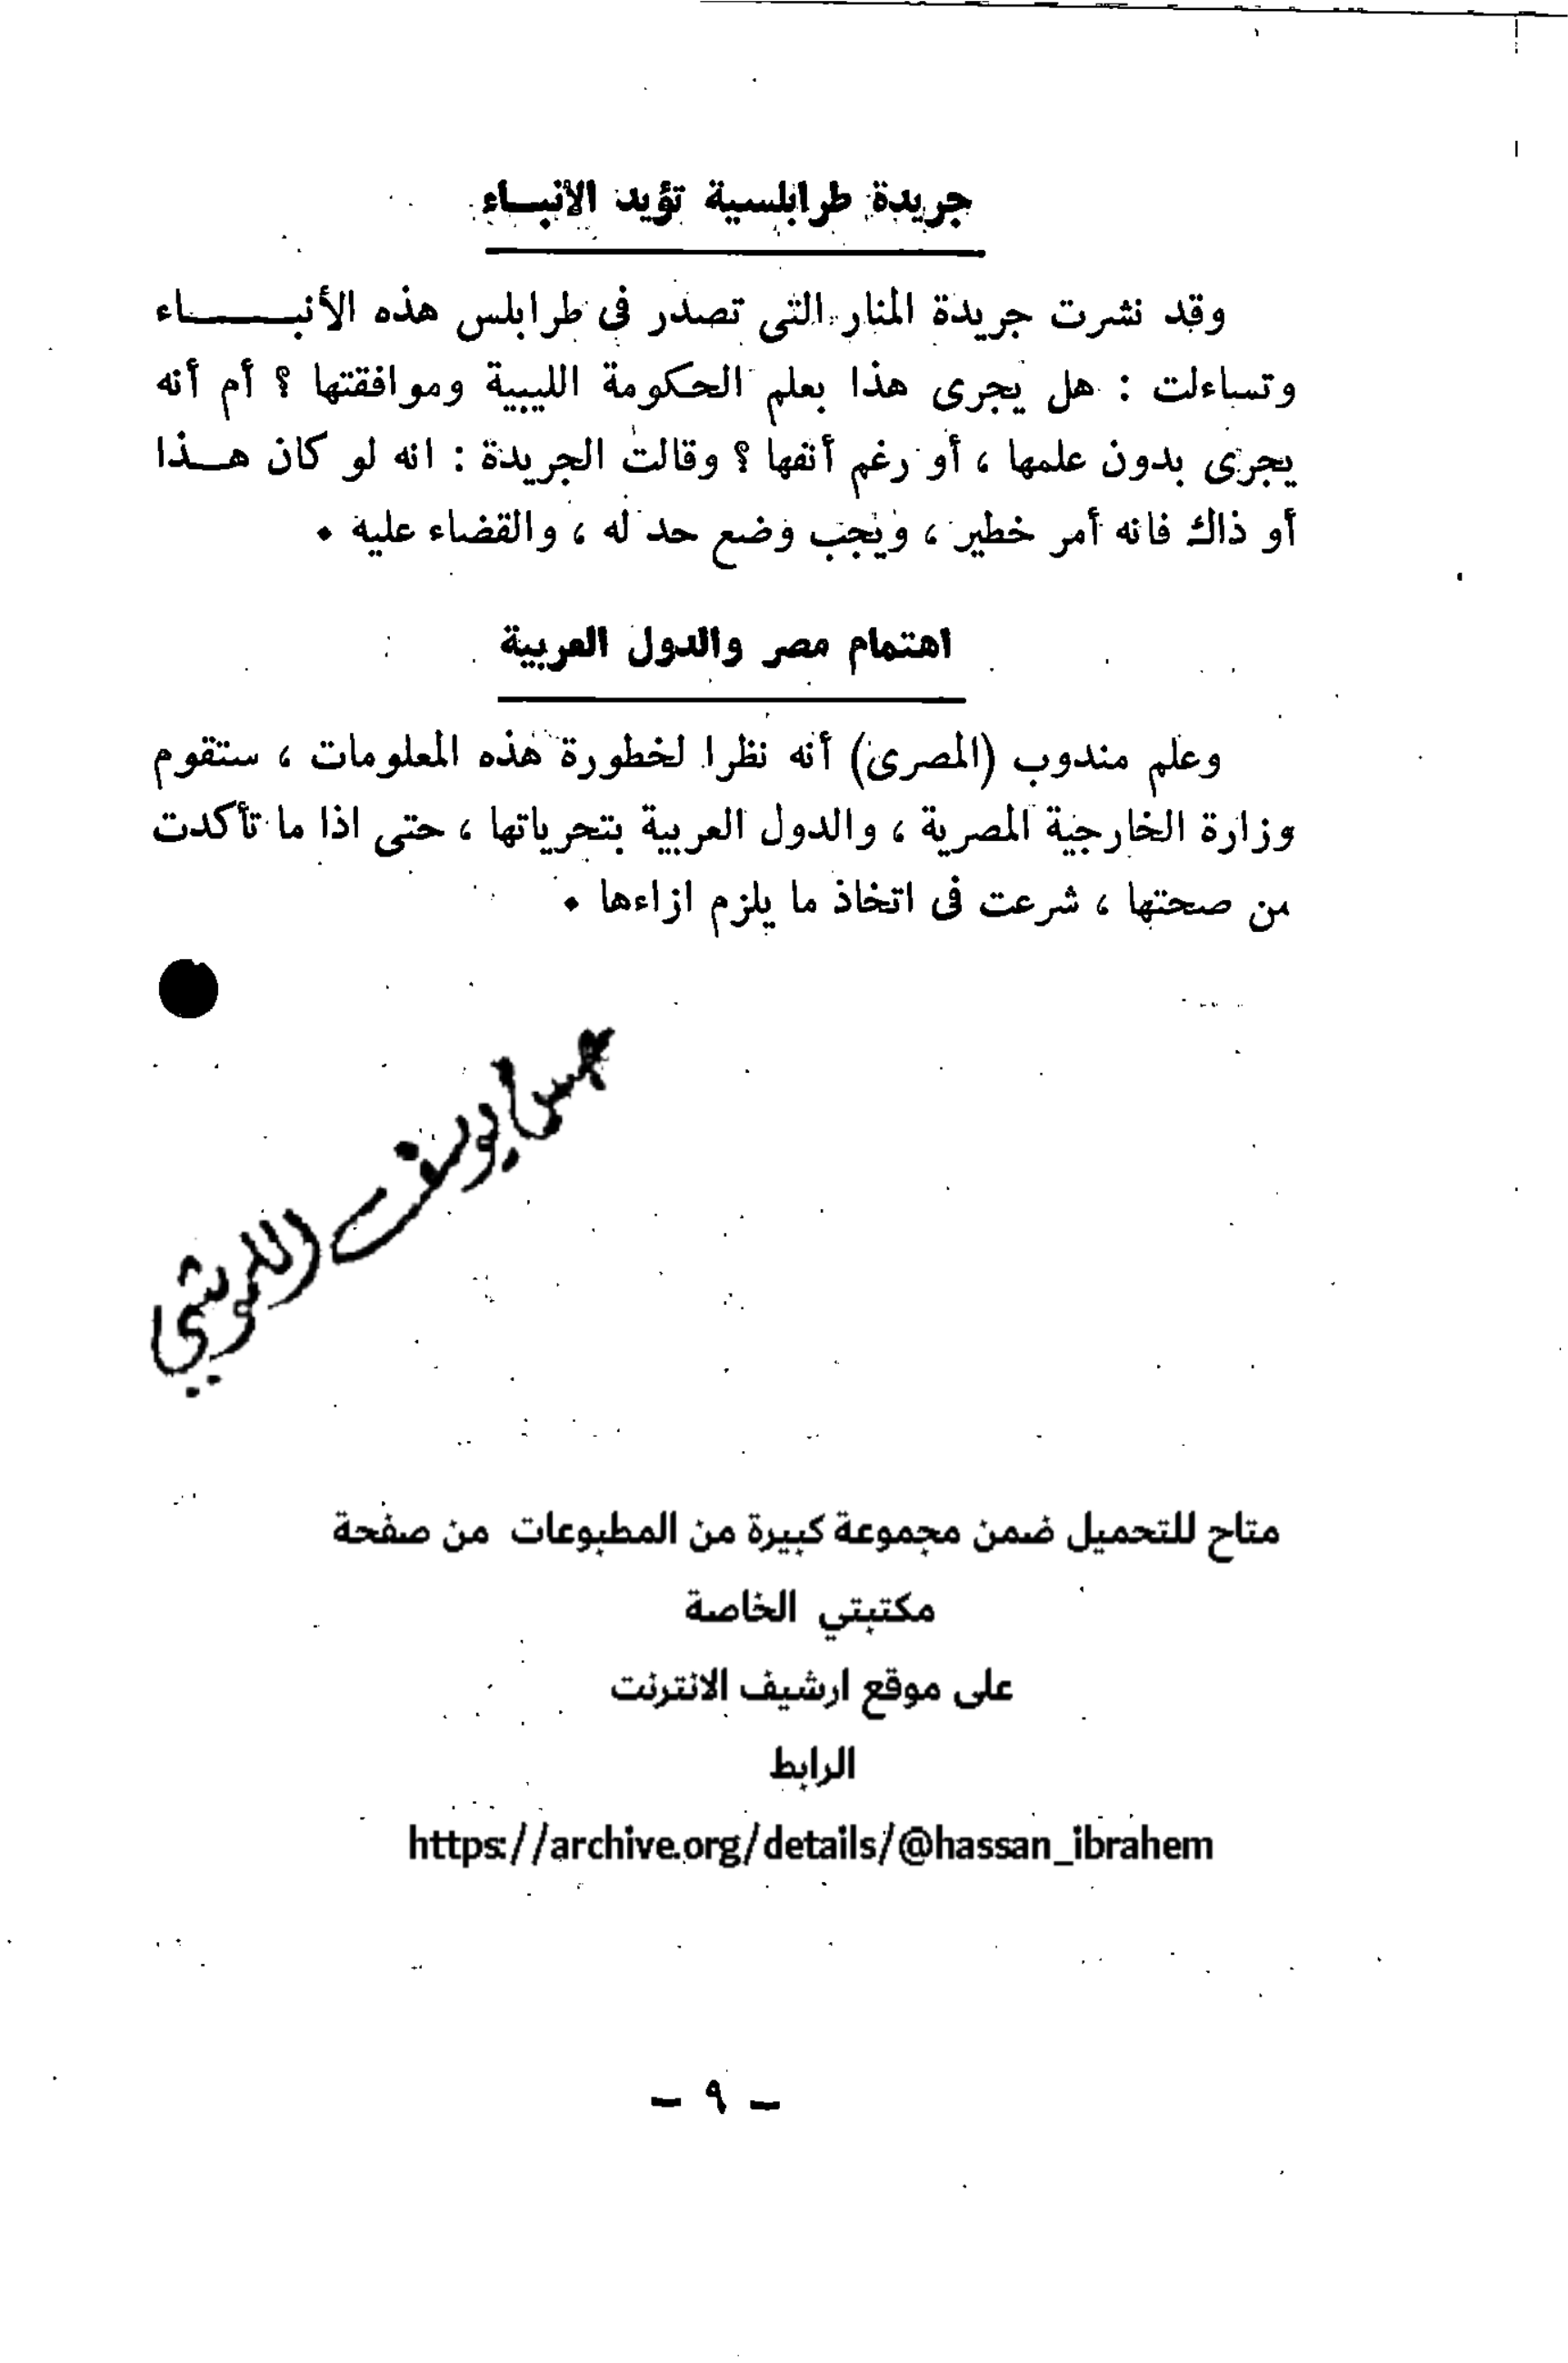 جريدة طرابلسية تؤيد الأنبـاء
وقد نشرت جريدة المنار التى تصدر فى طرابلس هذه الأنبـــــاء
وتساءلت : هل يجرى هذا بعلم الحكومة الليبية وموافقتها ؟ أم أنه
يجرى بدون علمها ، أو رغم أنفها ؟ وقالت الجريدة : انه لو كان هـذا
أو ذاك فانه أمر خطير ، ويجب وضع حد له ، والقضاء عليه .
اهتمام مصر والدول العربية
وعلم مندوب (المصرى) أنه نظرا لخطورة هذه المعلومات ، ستقوم
وزارة الخارجية المصرية ، والدول العربية بتحرياتها ، حتى اذا ما تأكدت
من صحتها ، شرعت فى اتخاذ ما يلزم ازاءها .
يوسف
متاح للتحميل ضمن مجموعة كبيرة من المطبوعات من صفحة
مكتبتي الخاصة
على موقع ارشيف الانترنت
الرابط
https://archive.org/details/@hassan_ibrahem
– ٩ –